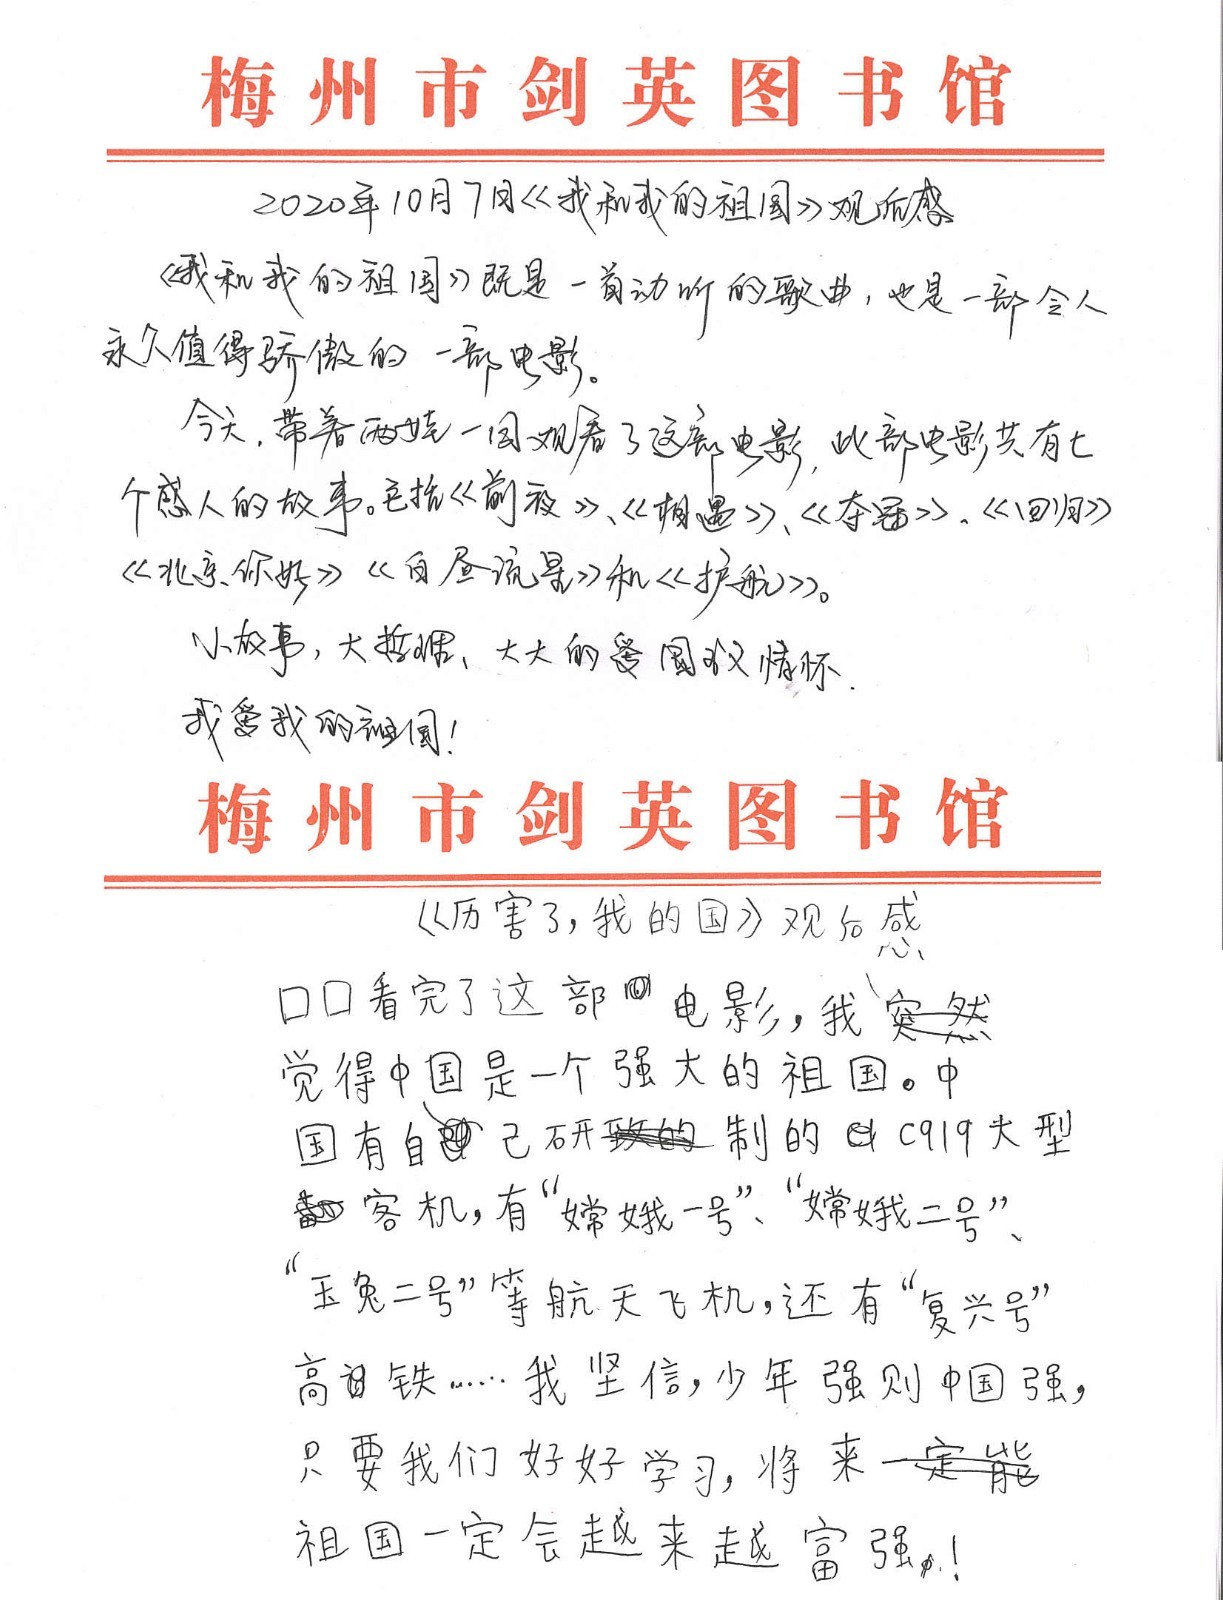 梅州市剑英图书馆
2020年10月7日《我和我的祖国》观后感
《我和我的祖国》既是一首动听的歌曲，也是一部令人
永久值得骄傲的一部电影。
今天，带着两娃一同观看了这部电影，此部电影共有七
个感人的故事。包括《前夜》、《相遇》、《夺冠》、《回归》
《北京你好》《白昼流星》和《护航》。
小故事，大哲理、大大的爱国主义情怀.
我爱我的祖国！
梅州市剑英图书馆
《厉害了，我的国》观后感
口口看完了这部电影，我突然
觉得中国是一个强大的祖国。中
国有自己研致的制的C919大型
客机，有“嫦娥一号”、“嫦娥二号”、
“玉兔二号”等航天飞机，还有“复兴号”
高铁……我坚信，少年强则中国强，
只要我们好好学习，将来一定能
祖国一定会越来越富强！